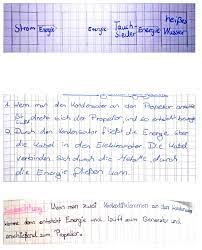 Strom Energie Energie Tauch- sieder Energie heißes Wasser
1. Wenn man den Kondensator an den Propeller
dreht sich der Propeller, und so entsteht
2. Durch den Kondensator fließt die Energie über
die Kabel in den Elektromotor. Die Kabel
verbinden. Sich durch die Metalle, durch
die Energie fließen kann.
Wenn man zwei an den
kommt dann entsteht Energie und läuft zum Generator und
anschließend zum Propeller.